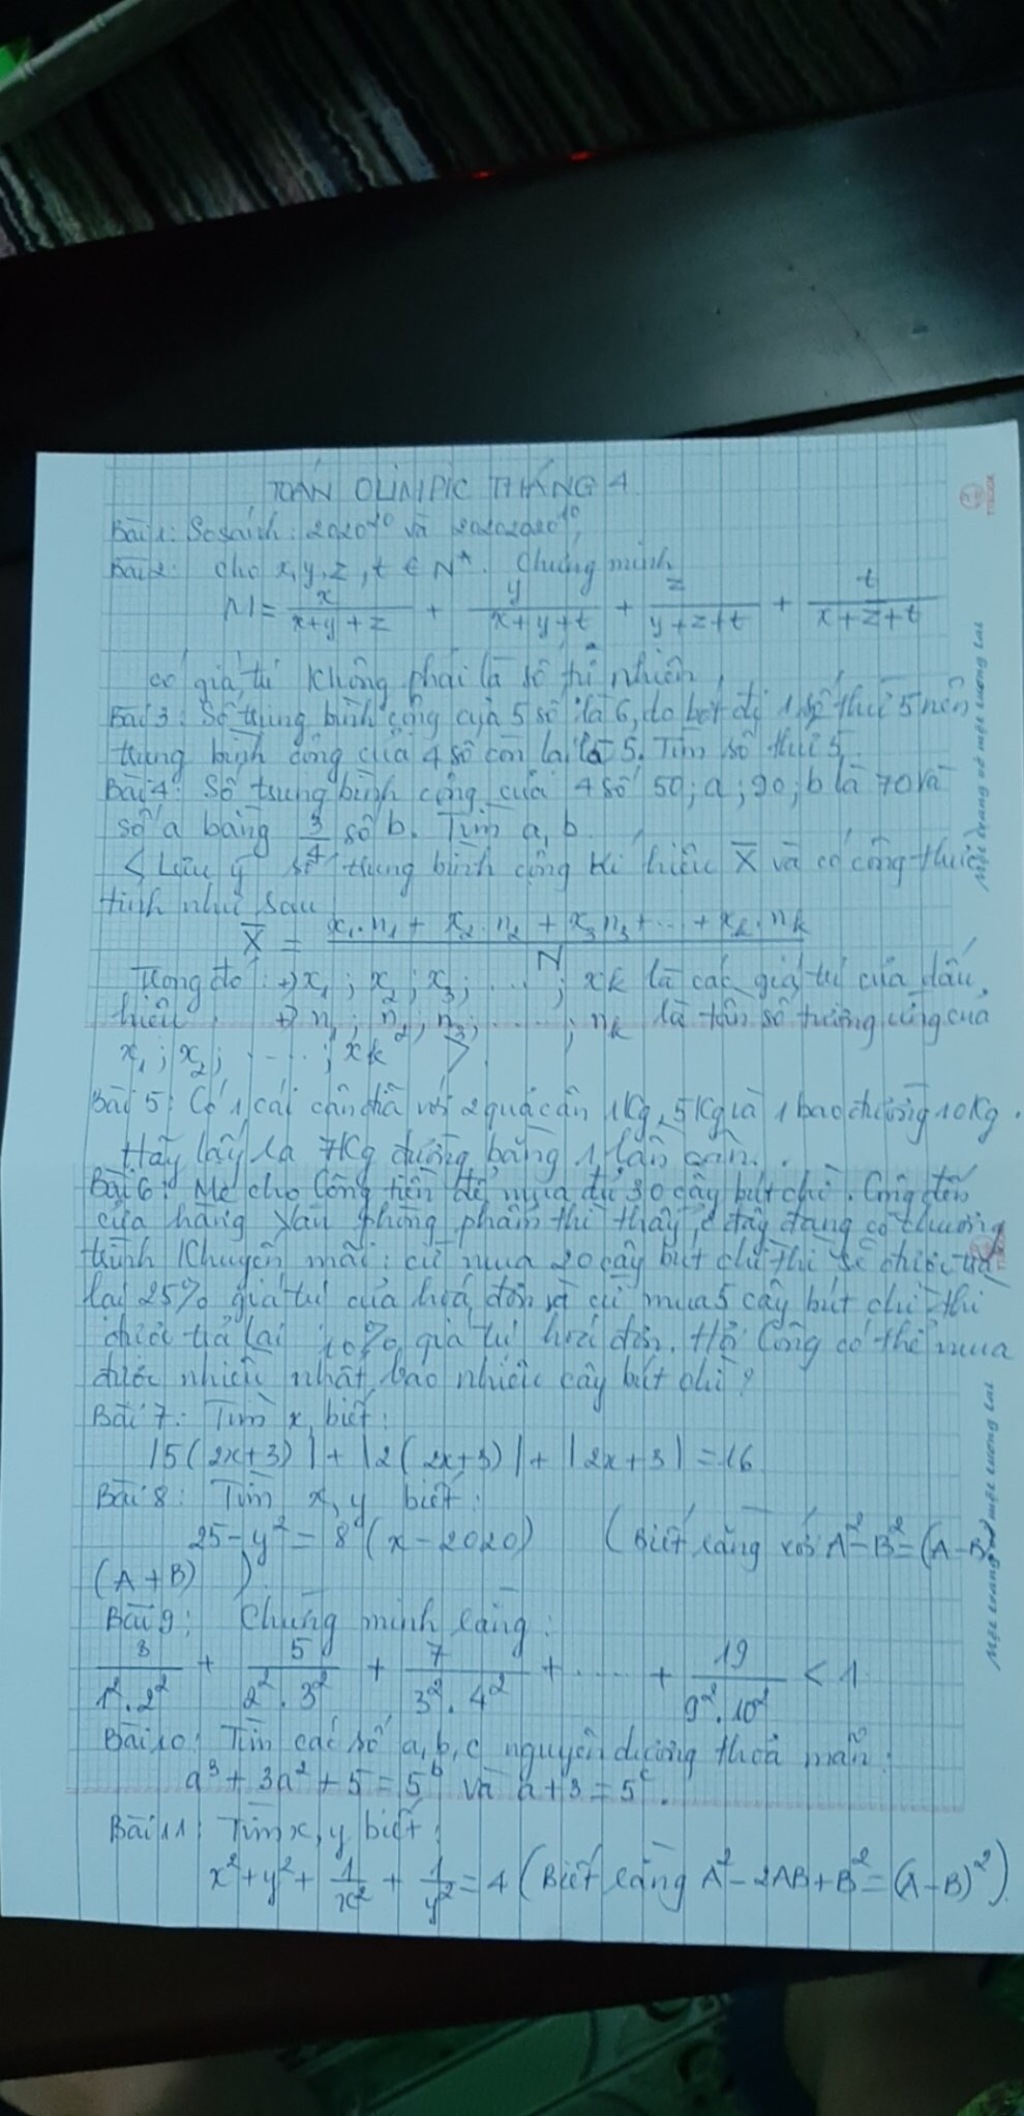 TOÁN OLIMPIC THÁNG 4
Bài 1: So sánh: 2020¹⁰ và 20202020¹⁰
Bài 2: Cho x, y, z, t ∈ N*. Chứng minh
M = x/(x+y+z) + y/(x+y+t) + z/(y+z+t) + t/(x+z+t)
có giá trị không phải là số tự nhiên
Bài 3: Số trung bình cộng của 5 số là 6, do bớt đi 1 số thứ 5 nên
trung bình cộng của 4 số còn lại là 5. Tìm số thứ 5.
Bài 4: Số trung bình cộng của 4 số 50; a; 90; b là 70 và
số a bằng 3/4 số b. Tìm a, b.
< Lưu ý số trung bình cộng kí hiệu X̄ và có công thức
tính như sau
X̄ = (x₁.n₁ + x₂.n₂ + x₃n₃ + ... + xₖ.nₖ)/N
Trong đó: +) x₁; x₂; x₃; ....; xk là các giá trị của dấu
hiệu. +) n₁; n₂; n₃; .....; nk là tần số tương ứng của
x₁; x₂; .....; xk >.
Bài 5: Có 1 cái cân đĩa với 2 quả cân 1Kg, 5Kg và 1 bao đường 10Kg.
Hãy lấy ra 7Kg đường bằng 1 lần cân.
Bài 6: Mẹ cho Công tiền để mua đủ 30 cây bút chì. Công đến
cửa hàng văn phòng phẩm thì thấy ở đây đang có chương
trình khuyến mãi: cứ mua 20 cây bút chì thì sẽ được trả
lại 25% giá trị của hoá đơn và cứ mua 5 cây bút chì thì
được trả lại 10% giá trị hoá đơn. Hỏi Công có thể mua
được nhiều nhất bao nhiêu cây bút chì?
Bài 7: Tìm x, biết:
|5(2x+3)| + |2(2x+3)| + |2x+3| = 16
Bài 8: Tìm x, y biết:
25 - y² = 8(x - 2020) (Biết rằng với A² - B² = (A - B)
(A + B) )
Bài 9: Chứng minh rằng:
3/(1².2²) + 5/(2².3²) + 7/(3².4²) + ..... + 19/(9².10²) < 1
Bài 10: Tìm các số a, b, c nguyên dương thoả mãn:
a³ + 3a² + 5 = 5ᵇ và a + 3 = 5ᶜ.
Bài 11: Tìm x, y biết:
x² + y² + 1/x² + 1/y² = 4 (Biết rằng A² - 2AB + B² = (A - B)²)